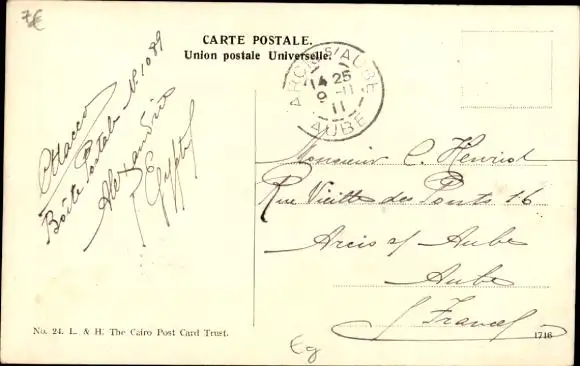 7€
CARTE POSTALE.
Union postale Universelle.
ARCIS S/AUBE
14 25
9 -11
11
AUBE
Boîte Postale No. 1089
Alexandrie
(Egypte)
Monsieur C. Henriot
Rue Vieille des Ponts 16
Arcis s/ Aube
Aube
(France)
No. 24. L. & H. The Cairo Post Card Trust.
1716
Eg